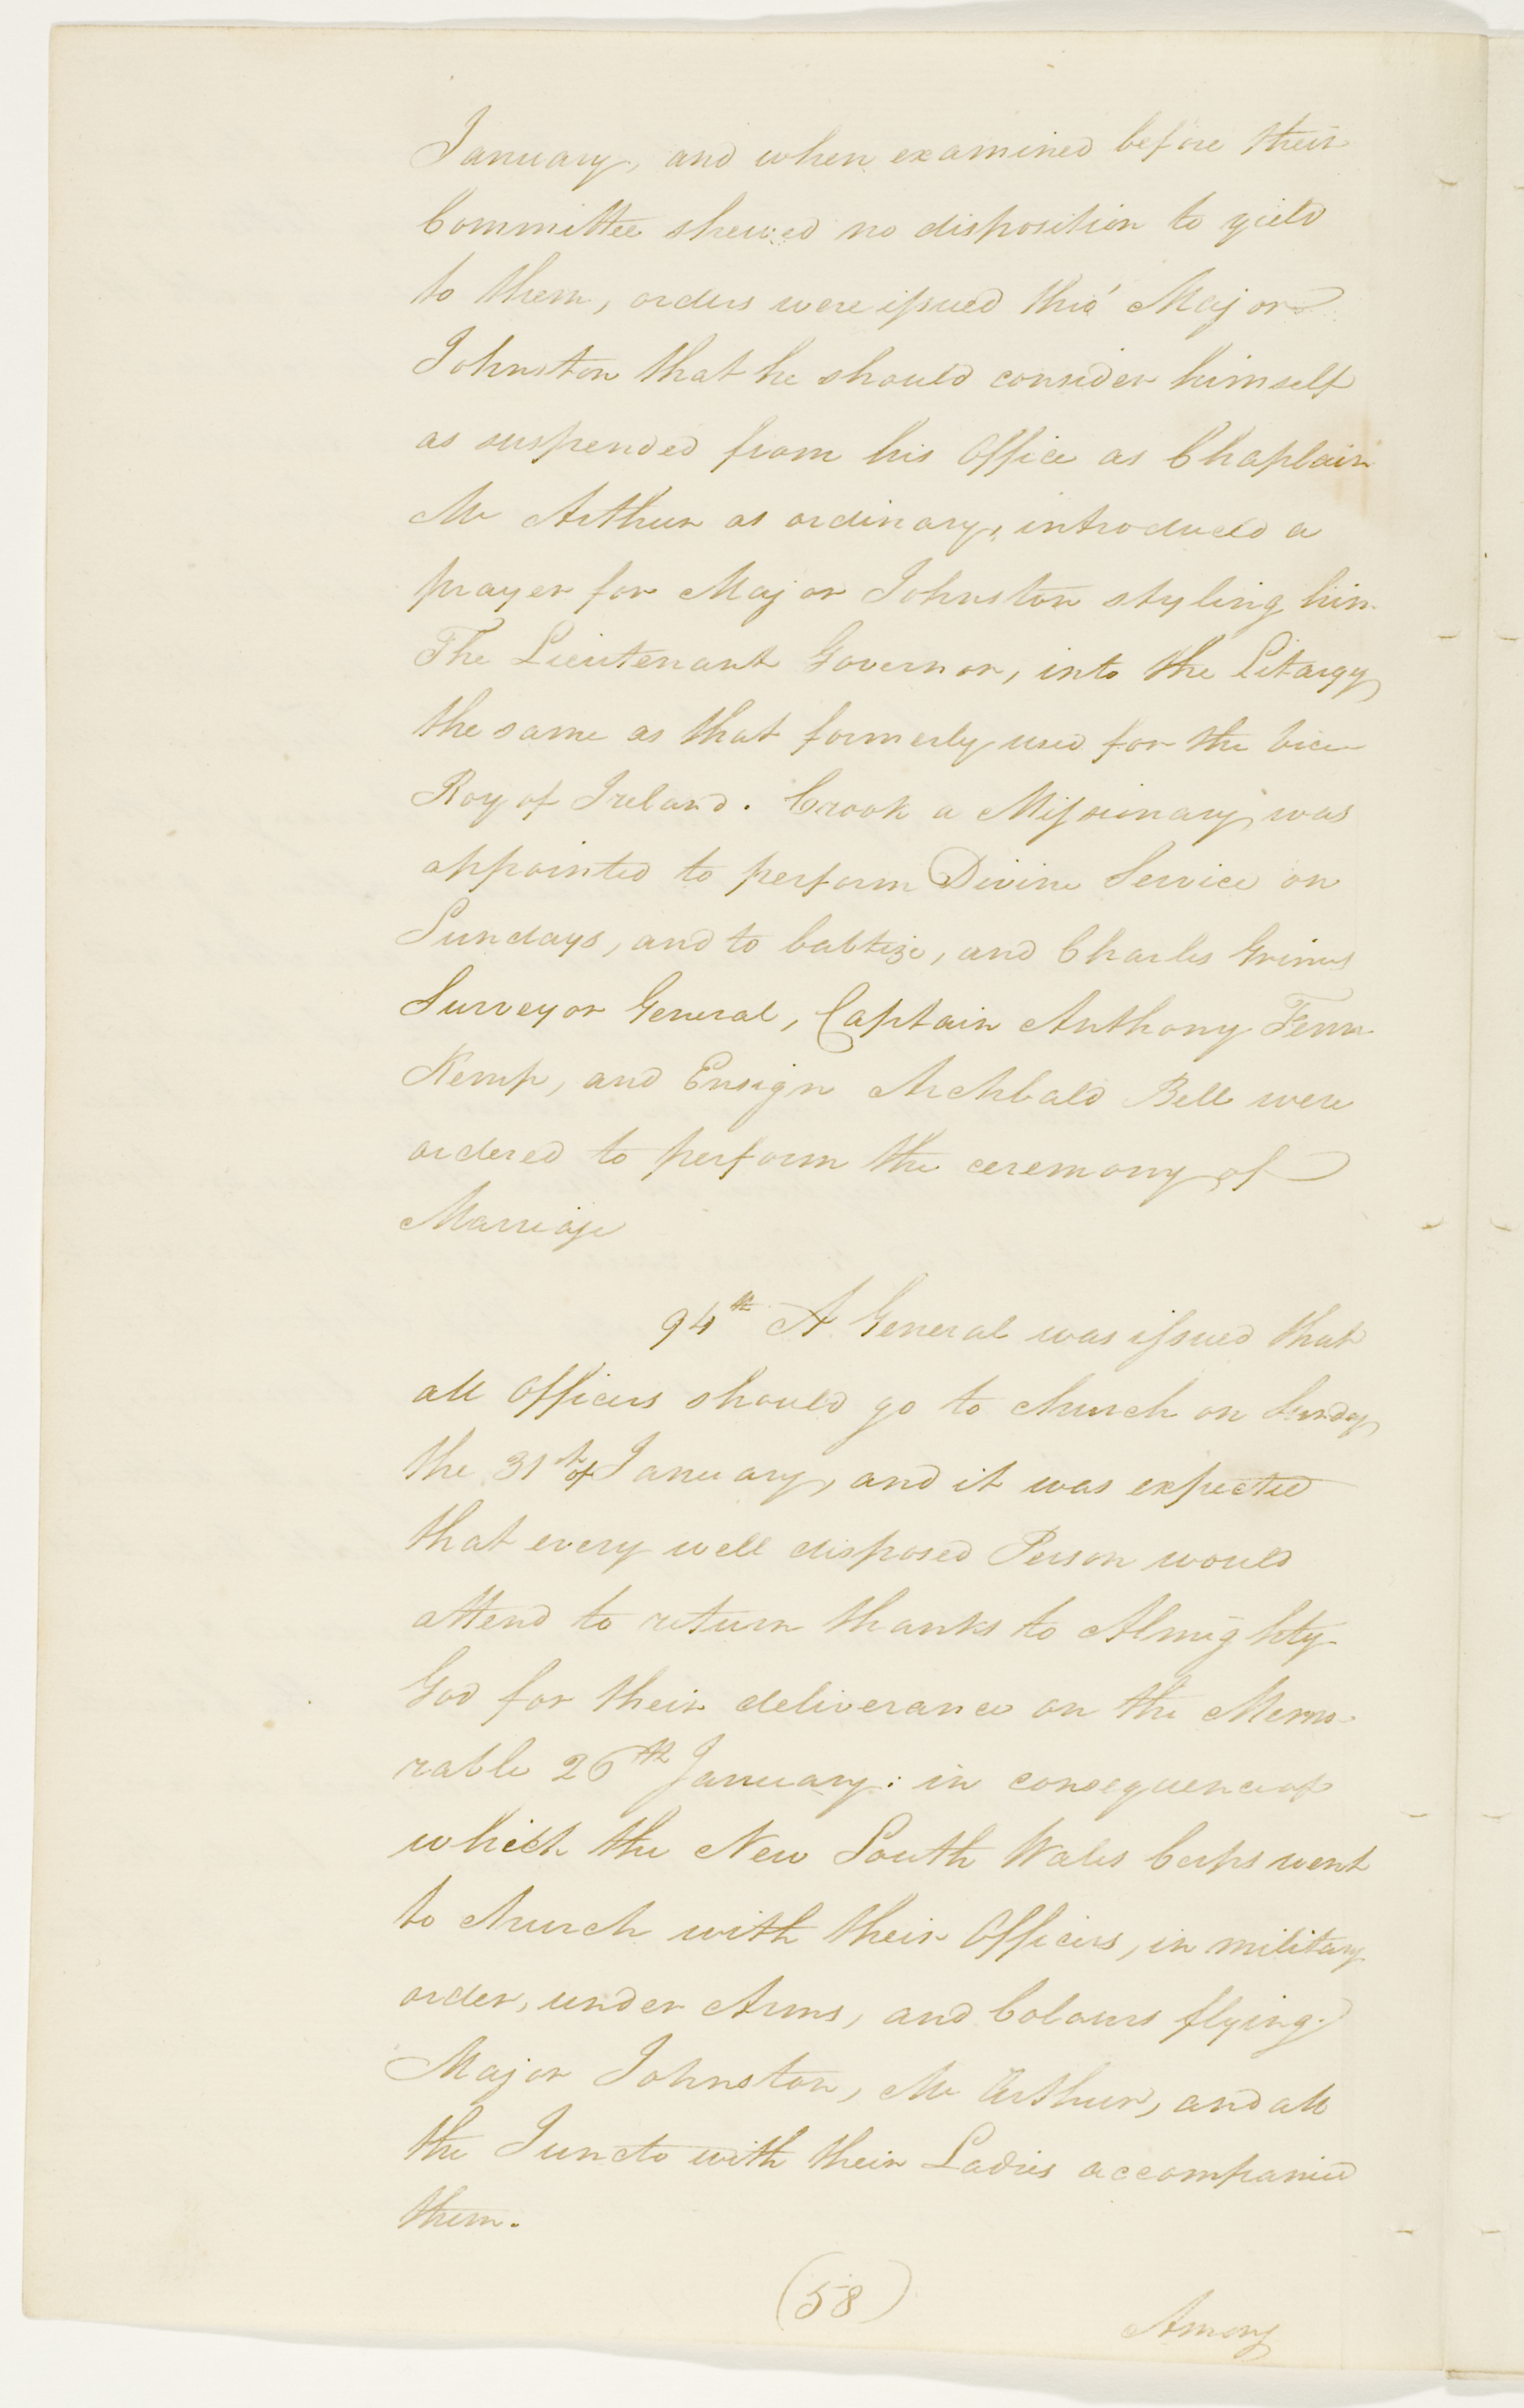 January, and when examined before their
Committee shewed no disposition to yield
to them, orders were issued thro' Major
Johnston that he should consider himself
as suspended from his Office as Chaplain
Mr Arthur as ordinary, introduced a
prayer for Major Johnston styling him
The Lieutenant Governor, into the Litargy
the same as that formerly used for the vice
Roy of Ireland. Crook a Missionary was
appointed to perform Divine Service on
Sundays, and to babtize, and Charles Grimes
Surveyor General, Captain Anthony Fenn
Kemp, and Ensign Archbald Bell were
ordered to perform the ceremony of
Marriage
94th A General was issued that
all Officers should go to church on Sunday
the 31st of January, and it was expected
that every well disposed Person would
attend to return thanks to Almighty
God for their deliverance on the Memo-
rable 26th January: in consequence of
which the New South Wales Corps went
to church with their Officers, in military
order, under Arms, and Colours flying.
Major Johnston, Mr Arthur, and all
the Juncto with their Ladies accompanied
them.
(58)
Among